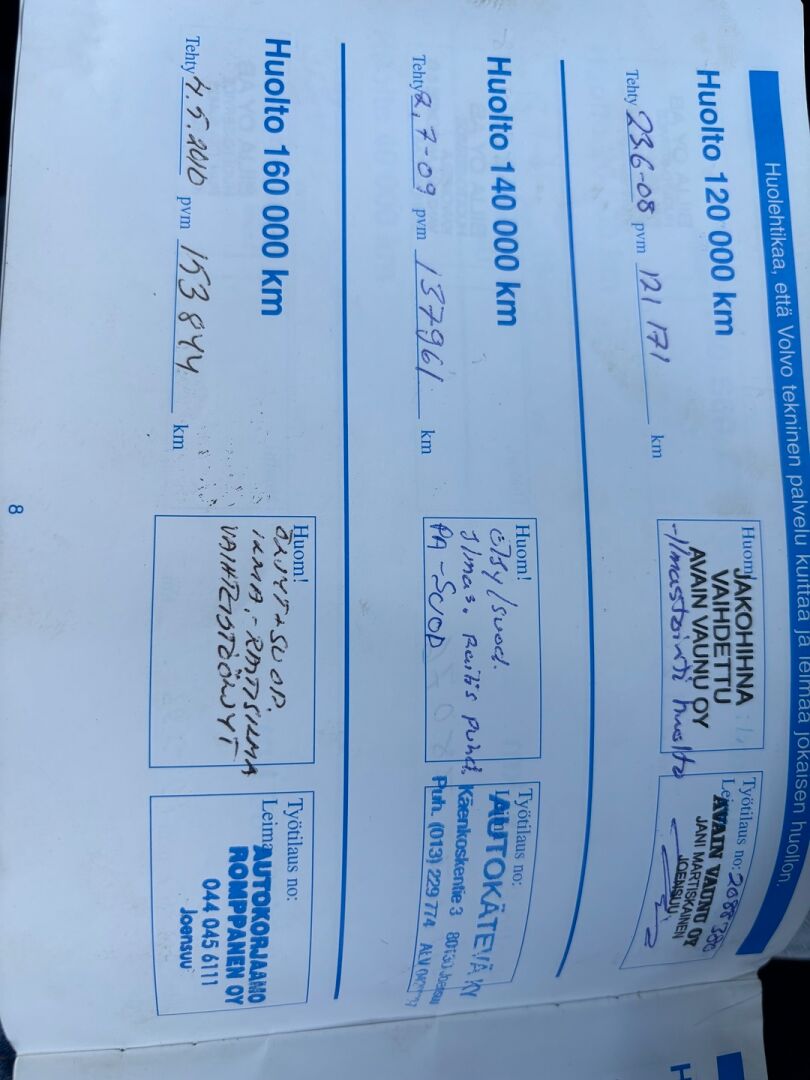 Huolehtikaa, että Volvo tekninen palvelu kuittaa ja leimaa jokaisen huollon.
Huolto 120 000 km
Tehty 23.6-08 pvm 121 171 km
Huom!
JAKOHIHNA
VAIHDETTU
AVAIN VAUNU OY
-Ilmastointi huolto
Työtilaus no:
Leima
AVAIN VAUNU OY
JANI MARTISKAINEN
JOENSUU
Huolto 140 000 km
Tehty 2,7-09 pvm 137961 km
Huom!
öljy/suod.
ilmas. raitis puhd.
PA-SUOD
Työtilaus no:
AUTOKÄTEVÄ KY
Käenkoskentie 3 80130 Joensuu
Puh. (013) 229 774
Huolto 160 000 km
Tehty 4.5.2010 pvm 153 844 km
Huom!
ÖLJYT+SUOD.
ILMA,-RAITISILMA
VAIHTEISTOÖLJYT
Työtilaus no:
Leima
AUTOKORJAAMO
ROMPPANEN OY
044 045 6111
Joensuu
8
H